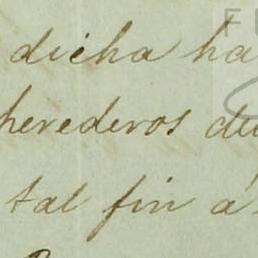 dicha ha
herederos de
tal fin á